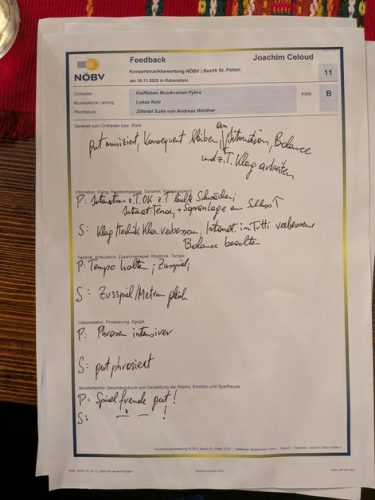 NÖBV
Feedback
Joachim Celoud
Konzertmusikbewertung NÖBV | Bezirk St. Pölten
am 16.11.2025 in Rabenstein
11
Orchester
Raiffeisen Musikverein Pyhra
Musikalische Leitung
Lukas Nolz
KMB
B
Pflichtstück
Zillertal Suite von Andreas Waldner
Generell zum Orchester bzw. Werk
an
gut musiziert, Konsequent bleiben, Intonation, Balance
und z.T. Klang arbeiten
Intonation, Klang, Dynamik
P: Intonation z.T. OK z.T. leichte Schwächen;
Intonat. Tenor, + Sopranlage am Schluss
S: Klang Technik Klar verbessern, Intonat. im Tutti verbessern
Balance beachten
Technik, Artikulation, Zusammenspiel, Rhythmik, Tempo
P: Tempo halten; Zusspiel;
S: Zusspiel/Metrum
Interpretation: Phrasierung, Agogik
P: Phrasen intensiver
S: gut phrasiert
Musikalischer Gesamteindruck und Darstellung der Werke: Emotion und Spielfreude
P: Spielfreude gut!
S: — " — !